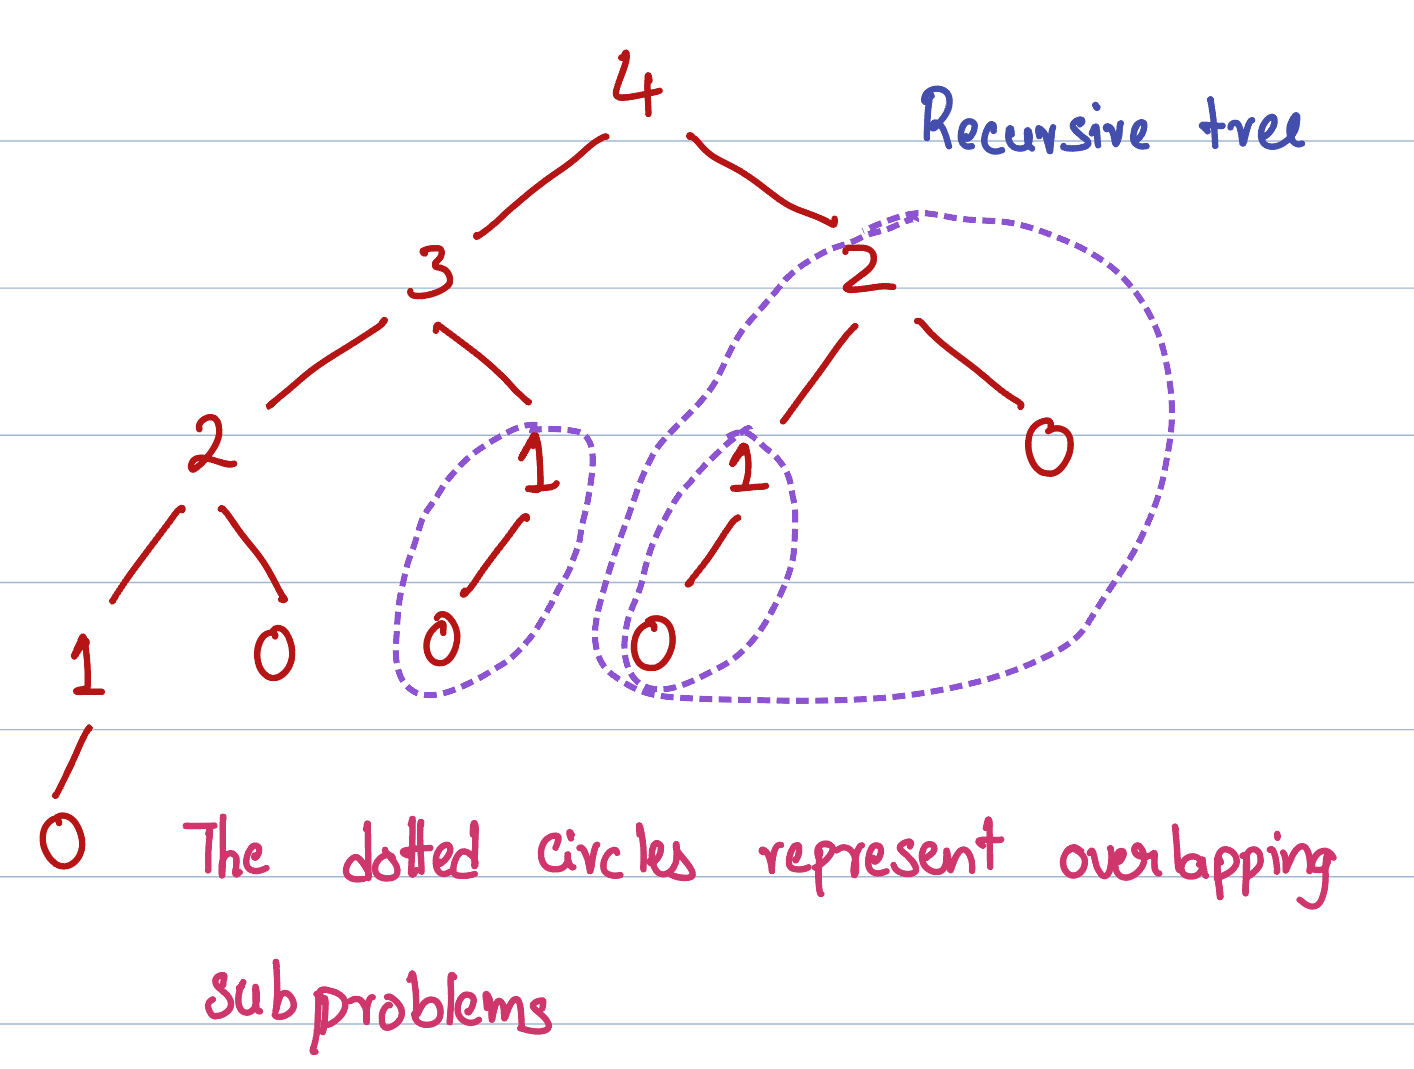 4
Recursive tree
3 2
2 1 1 0
1 0 0 0
0
The dotted circles represent overlapping
subproblems